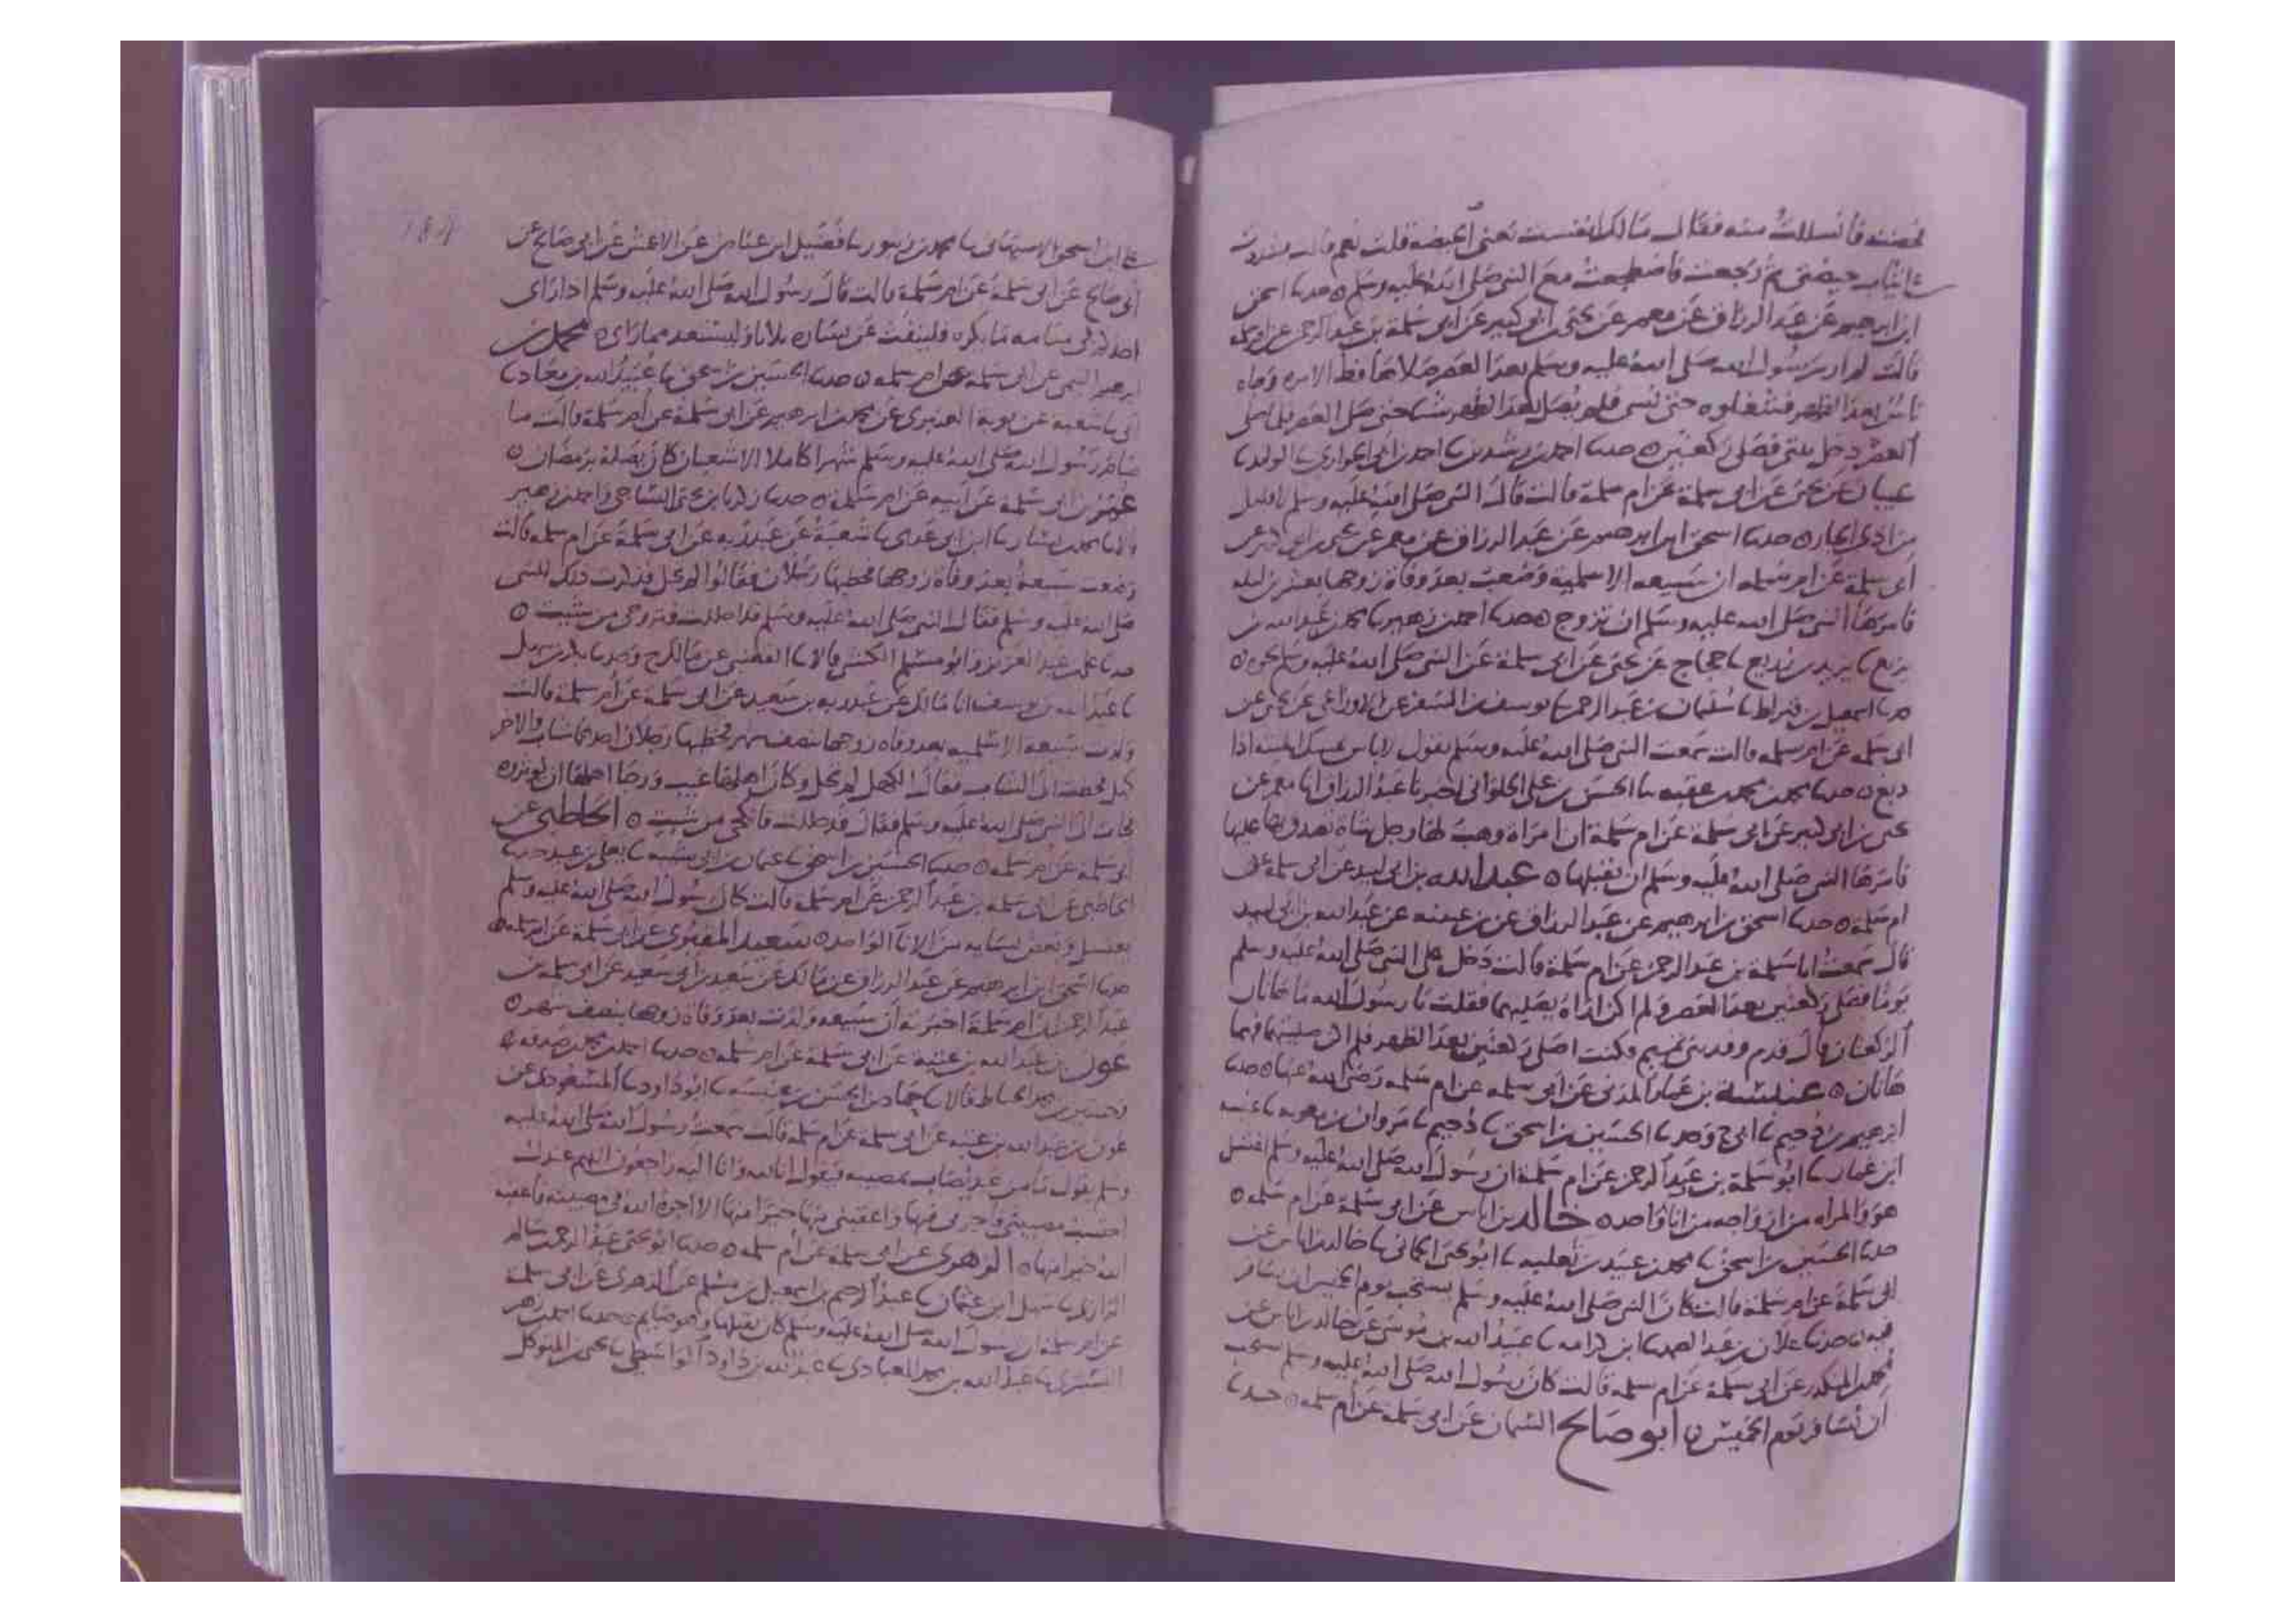 فحضت فانسللت منه فقال مالك انفست يعني الحيضة قلت نعم قالت فشددت
علي ثياب حيضتي ثم رجعت فاضطجعت مع النبي صلى الله عليه وسلم ٥ حدثنا اسحق
ابن ابرهيم عن عبد الرزاق عن معمر عن يحيى بن ابي كثير عن ابي سلمة بن عبد الرحمن عن ام سلمة
قالت لم ار رسول الله صلى الله عليه وسلم بعد العصر صلاها قط الا مرة وجاه
ناس بعد الظهر فشغلوه حتى نسي فلم يصل بعد الظهر شيا حتى صلى العصر فلما صلى
العصر دخل بيتي فصلى ركعتين ٥ حدثنا احمد بن رشدين نا احمد بن ابي الحواري نا الوليد نا
شيبان عن يحيى عن ابي سلمة عن ام سلمة قالت قال النبي صلى الله عليه وسلم
حدثنا اسحق ابن ابرهيم عن عبد الرزاق عن معمر عن يحيى بن ابي كثير عن
ابي سلمة عن ام سلمة ان سبيعة الاسلمية وضعت بعد وفاة زوجها بعشرين ليلة
فامرها النبي صلى الله عليه وسلم ان تزوج ٥ حدثنا احمد بن زهير نا محمد بن عبد الله بن
بزيع نا يزيد بن زريع نا حجاج عن يحيى عن ابي سلمة عن النبي صلى الله عليه وسلم نحوه ٥
حدثنا اسمعيل بن قيراط نا سليمان بن عبد الرحمن نا يوسف بن السفر عن الاوزاعي عن يحيى عن
ابي سلمة عن ام سلمة قالت سمعت النبي صلى الله عليه وسلم يقول لا باس بمسك الميتة اذا
دبغ ٥ حدثنا محمد بن محمد بن عقبة نا الحسن بن علي الحلواني اخبرنا عبد الرزاق انا معمر عن
يحيى بن ابي كثير عن ابي سلمة عن ام سلمة ان امراة وهبت لها رجل شاة تصدق بها عليها
فامرها النبي صلى الله عليه وسلم ان تقبلها ٥ عبد الله بن ابي لبيد عن ابي سلمة عن
ام سلمة ٥ حدثنا اسحق بن ابرهيم عن عبد الرزاق عن بن عيينة عن عبد الله بن ابي لبيد
قال سمعت ابا سلمة بن عبد الرحمن عن ام سلمة قالت دخل علي النبي صلى الله عليه وسلم
يوما فصلى ركعتين بعد العصر ولم اكن اراه يصليهما فقلت يا رسول الله ما هاتان
الركعتان قال قدم وفد بني تميم وكنت اصلي ركعتين بعد الظهر فلم اكن صليتهما فهما
هاتان ٥ عنبسة بن عمار المدني عن ابي سلمة عن ام سلمة رضي الله عنها ٥ حدثنا
ابرهيم بن دحيم نا ابي ح وحدثنا الحسين بن اسحق نا دحيم نا مروان بن معوية نا عنبسة
ابن عمار نا ابو سلمة بن عبد الرحمن عن ام سلمة ان رسول الله صلى الله عليه وسلم اغتسل
هو والمراة من ازواجه من انا واحد ٥ خالد بن اياس عن ابي سلمة عن ام سلمة ٥
حدثنا الحسين بن اسحق نا محمد بن عبيد بن ثعلبة نا ابو يحيى الحماني نا خالد بن اياس عن
ابي سلمة عن ام سلمة قالت كان النبي صلى الله عليه وسلم يستحب يوم الخميس ان يسافر
فيه ٥ حدثنا علان بن عبد الصمد نا ابن كرامة نا عبيد الله بن موسى عن خالد بن اياس عن
محمد المنكدر عن ابي سلمة عن ام سلمة قالت كان رسول الله صلى الله عليه وسلم يستحب
ان يسافر يوم الخميس ٥ ابو صالح السمان عن ابي سلمة عن ام سلمة ٥ حدثنا
علي ابن اسحق الاصبهاني نا محمد بن زنبور نا فضيل ابن عياض عن الاعمش عن ابي صالح عن
ابي صالح عن ابي سلمة عن ام سلمة قالت قال رسول الله صلى الله عليه وسلم اذا راى
احدكم في منامه ما يكره فلينفث عن يساره ثلاثا وليستعذ مما راى ٥ محمد بن
ابرهيم التيمي عن ابي سلمة عن ام سلمة ٥ حدثنا الحسين بن اسحق نا عبيد الله بن معاذ نا
ابي نا شعبة عن توبة العنبري عن محمد بن ابرهيم عن ابي سلمة عن ام سلمة قالت ما
صام رسول الله صلى الله عليه وسلم شهرا كاملا الا شعبان كان يصله برمضان ٥
عمر بن ابي سلمة عن ابيه عن ام سلمة ٥ حدثنا زكريا بن يحيى الساجي واحمد بن زهير
قالا نا محمد بن بشار نا ابن ابي عدي نا شعبة عن عبد ربه عن ابي سلمة عن ام سلمة قالت
وضعت سبيعة بعد وفاة زوجها فخطبها رجلان فقالوا لم تحل فذكرت ذلك للنبي
صلى الله عليه وسلم فقال النبي صلى الله عليه وسلم قد احللت فتزوجي من شيت ٥
حدثنا علي بن عبد العزيز وابو مسلم الكشي قالا نا القعنبي عن مالك ح وحدثنا بكر بن سهل
نا عبد الله بن يوسف انا مالك عن عبد ربه بن سعيد عن ابي سلمة عن ام سلمة قالت
ولدت سبيعة الاسلمية بعد وفاة زوجها بنصف شهر فخطبها رجلان احدهما شاب والاخر
كهل فحطت الى الشاب فقال الكهل لم تحل وكان اهلها غيب ورجا اهلها ان يوثروه
فجات الى النبي صلى الله عليه وسلم فقال قد حللت فانكحي من شيت ٥ الحاطبي عن
ابي سلمة عن ام سلمة ٥ حدثنا الحسين بن اسحق نا عثمان بن ابي شيبة نا يعلى بن عبيد حدثنا
الحاطبي عن ابي سلمة بن عبد الرحمن عن ام سلمة قالت كان رسول الله صلى الله عليه وسلم
يغتسل وبعض نسايه من الانا الواحد ٥ سعيد المقبري عن ابي سلمة عن ام سلمة ٥
حدثنا اسحق ابن ابرهيم عن عبد الرزاق عن مالك عن سعيد بن ابي سعيد عن ابي سلمة بن
عبد الرحمن ان ام سلمة اخبرته ان سبيعة ولدت بعد وفاة زوجها بنصف شهر ٥
عون بن عبد الله بن عتبة عن ابي سلمة عن ام سلمة ٥ حدثنا احمد بن محمد بن صدقة
قالا نا حماد بن الحسن بن عنبسة نا ابو داود نا المسعودي عن
عون بن عبد الله بن عتبة عن ابي سلمة عن ام سلمة قالت سمعت رسول الله صلى الله عليه
وسلم يقول ما من عبد يصاب بمصيبة فيقول انا لله وانا اليه راجعون اللهم عندك
احتسبت مصيبتي فاجرني فيها واعقبني منها خيرا منها الا اجره الله في مصيبته واعقبه
الله خيرا منها ٥ الزهري عن ابي سلمة عن ام سلمة ٥ حدثنا ابو يحيى عبد الرحمن بن سالم
الرازي نا سهل ابن عثمان نا عبد الرحيم بن اسمعيل بن مسلم عن الزهري عن ابي سلمة
عن ام سلمة ان رسول الله صلى الله عليه وسلم كان يقبلها وهو صايم ٥ حدثنا احمد بن زهير
التستري نا عبد الله بن محمد العبادي نا عبد الله بن داود الواسطي نا يحيى بن المتوكل